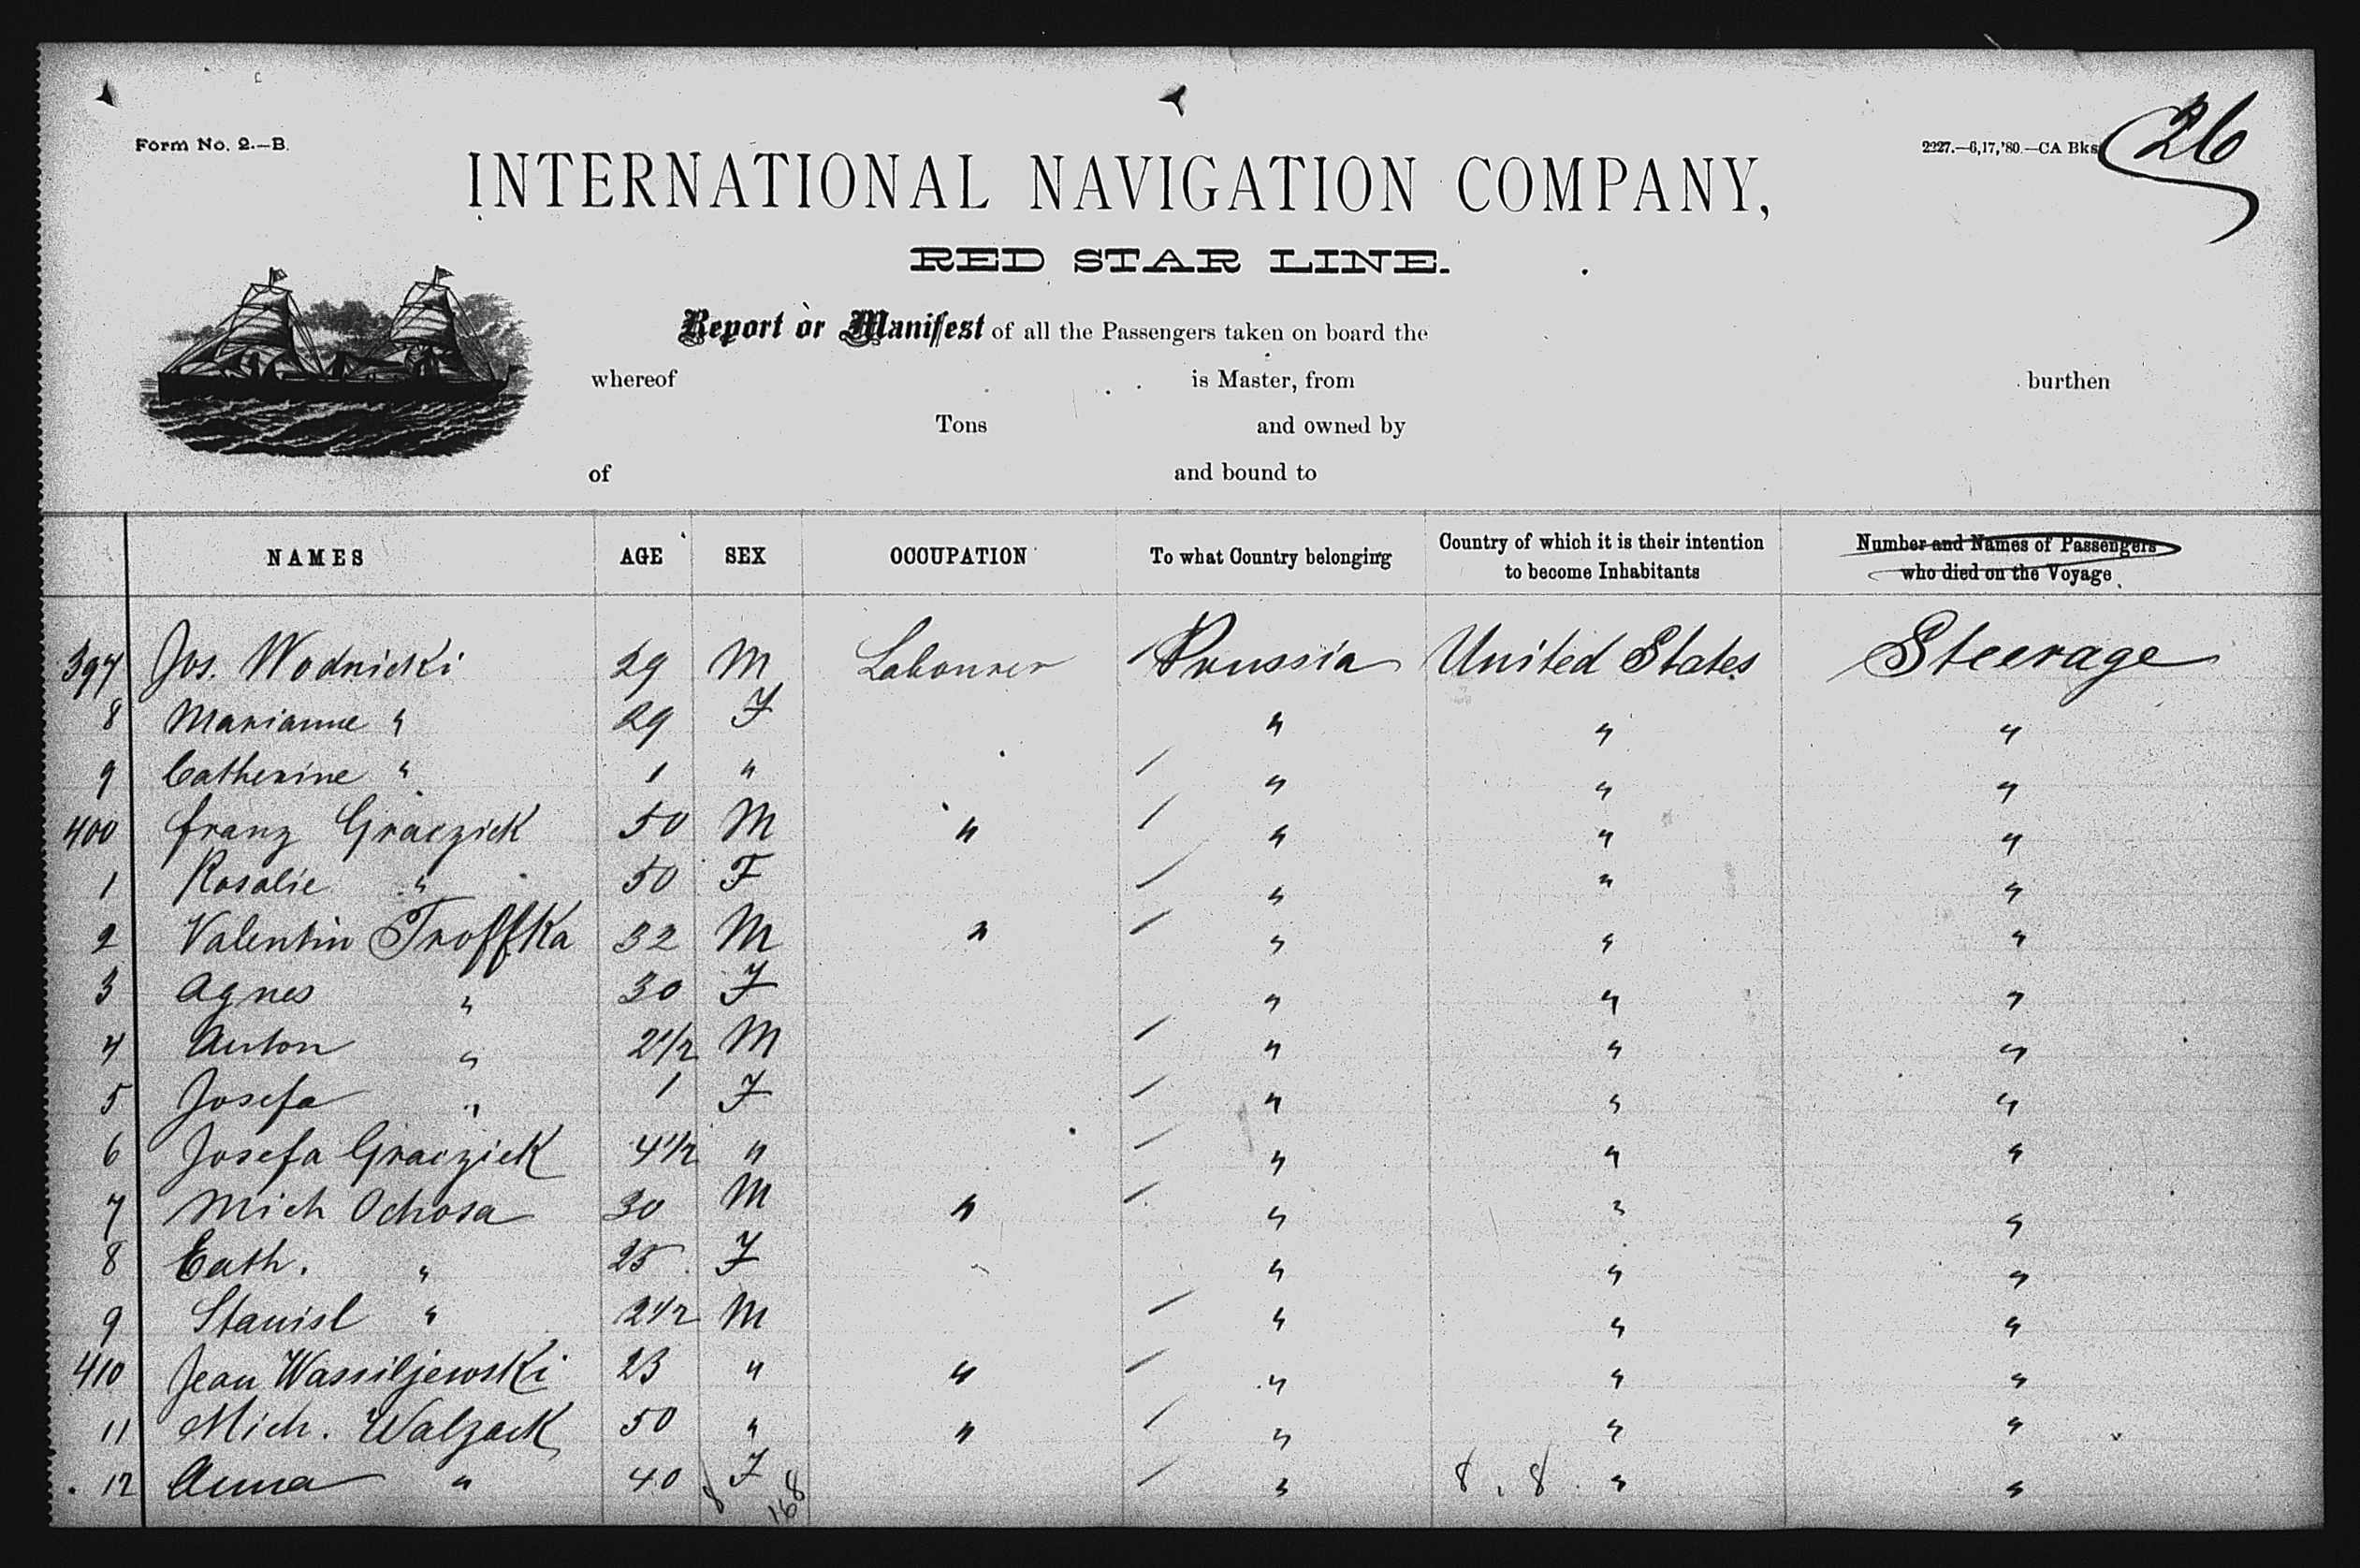 Form No. 2.—B.
2227.—6,17,'80.—CA Bks
26
INTERNATIONAL NAVIGATION COMPANY,
RED STAR LINE.
Report or Manifest of all the Passengers taken on board the
whereof is Master, from burthen
Tons and owned by
of and bound to
NAMES AGE SEX OCCUPATION To what Country belonging Country of which it is their intention to become Inhabitants Number and Names of Passengers who died on the Voyage.
397 Jos. Wodnicki 29 M Labourer Prussia United States Steerage
8 Marianne " 29 F " " "
9 Catherine " 1 " " " "
400 Franz Graczick 50 M " " " "
1 Rosalie " 50 F " " "
2 Valentin Troffka 32 M " " " "
3 Agnes " 30 F " " "
4 Anton " 2 1/2 M " " "
5 Josefa " 1 F " " "
6 Josefa Graczick 4 1/2 " " " "
7 Mich Ochosa 30 M " " " "
8 Cath. " 25 F " " "
9 Stanisl " 2 1/2 M " " "
410 Jean Wassiljewski 23 " " " " "
11 Mich. Walzack 50 " " " " "
12 Anna " 40 F " 8 . 8 " "
8 168